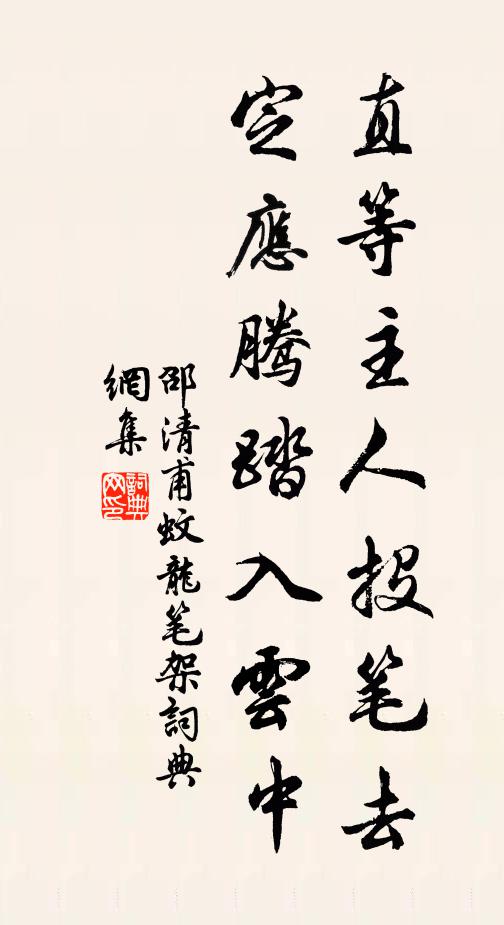 直等主人投笔去
定應腾踏入雲中
邵清甫蚊龍笔架詞典
網集
詞典
网印